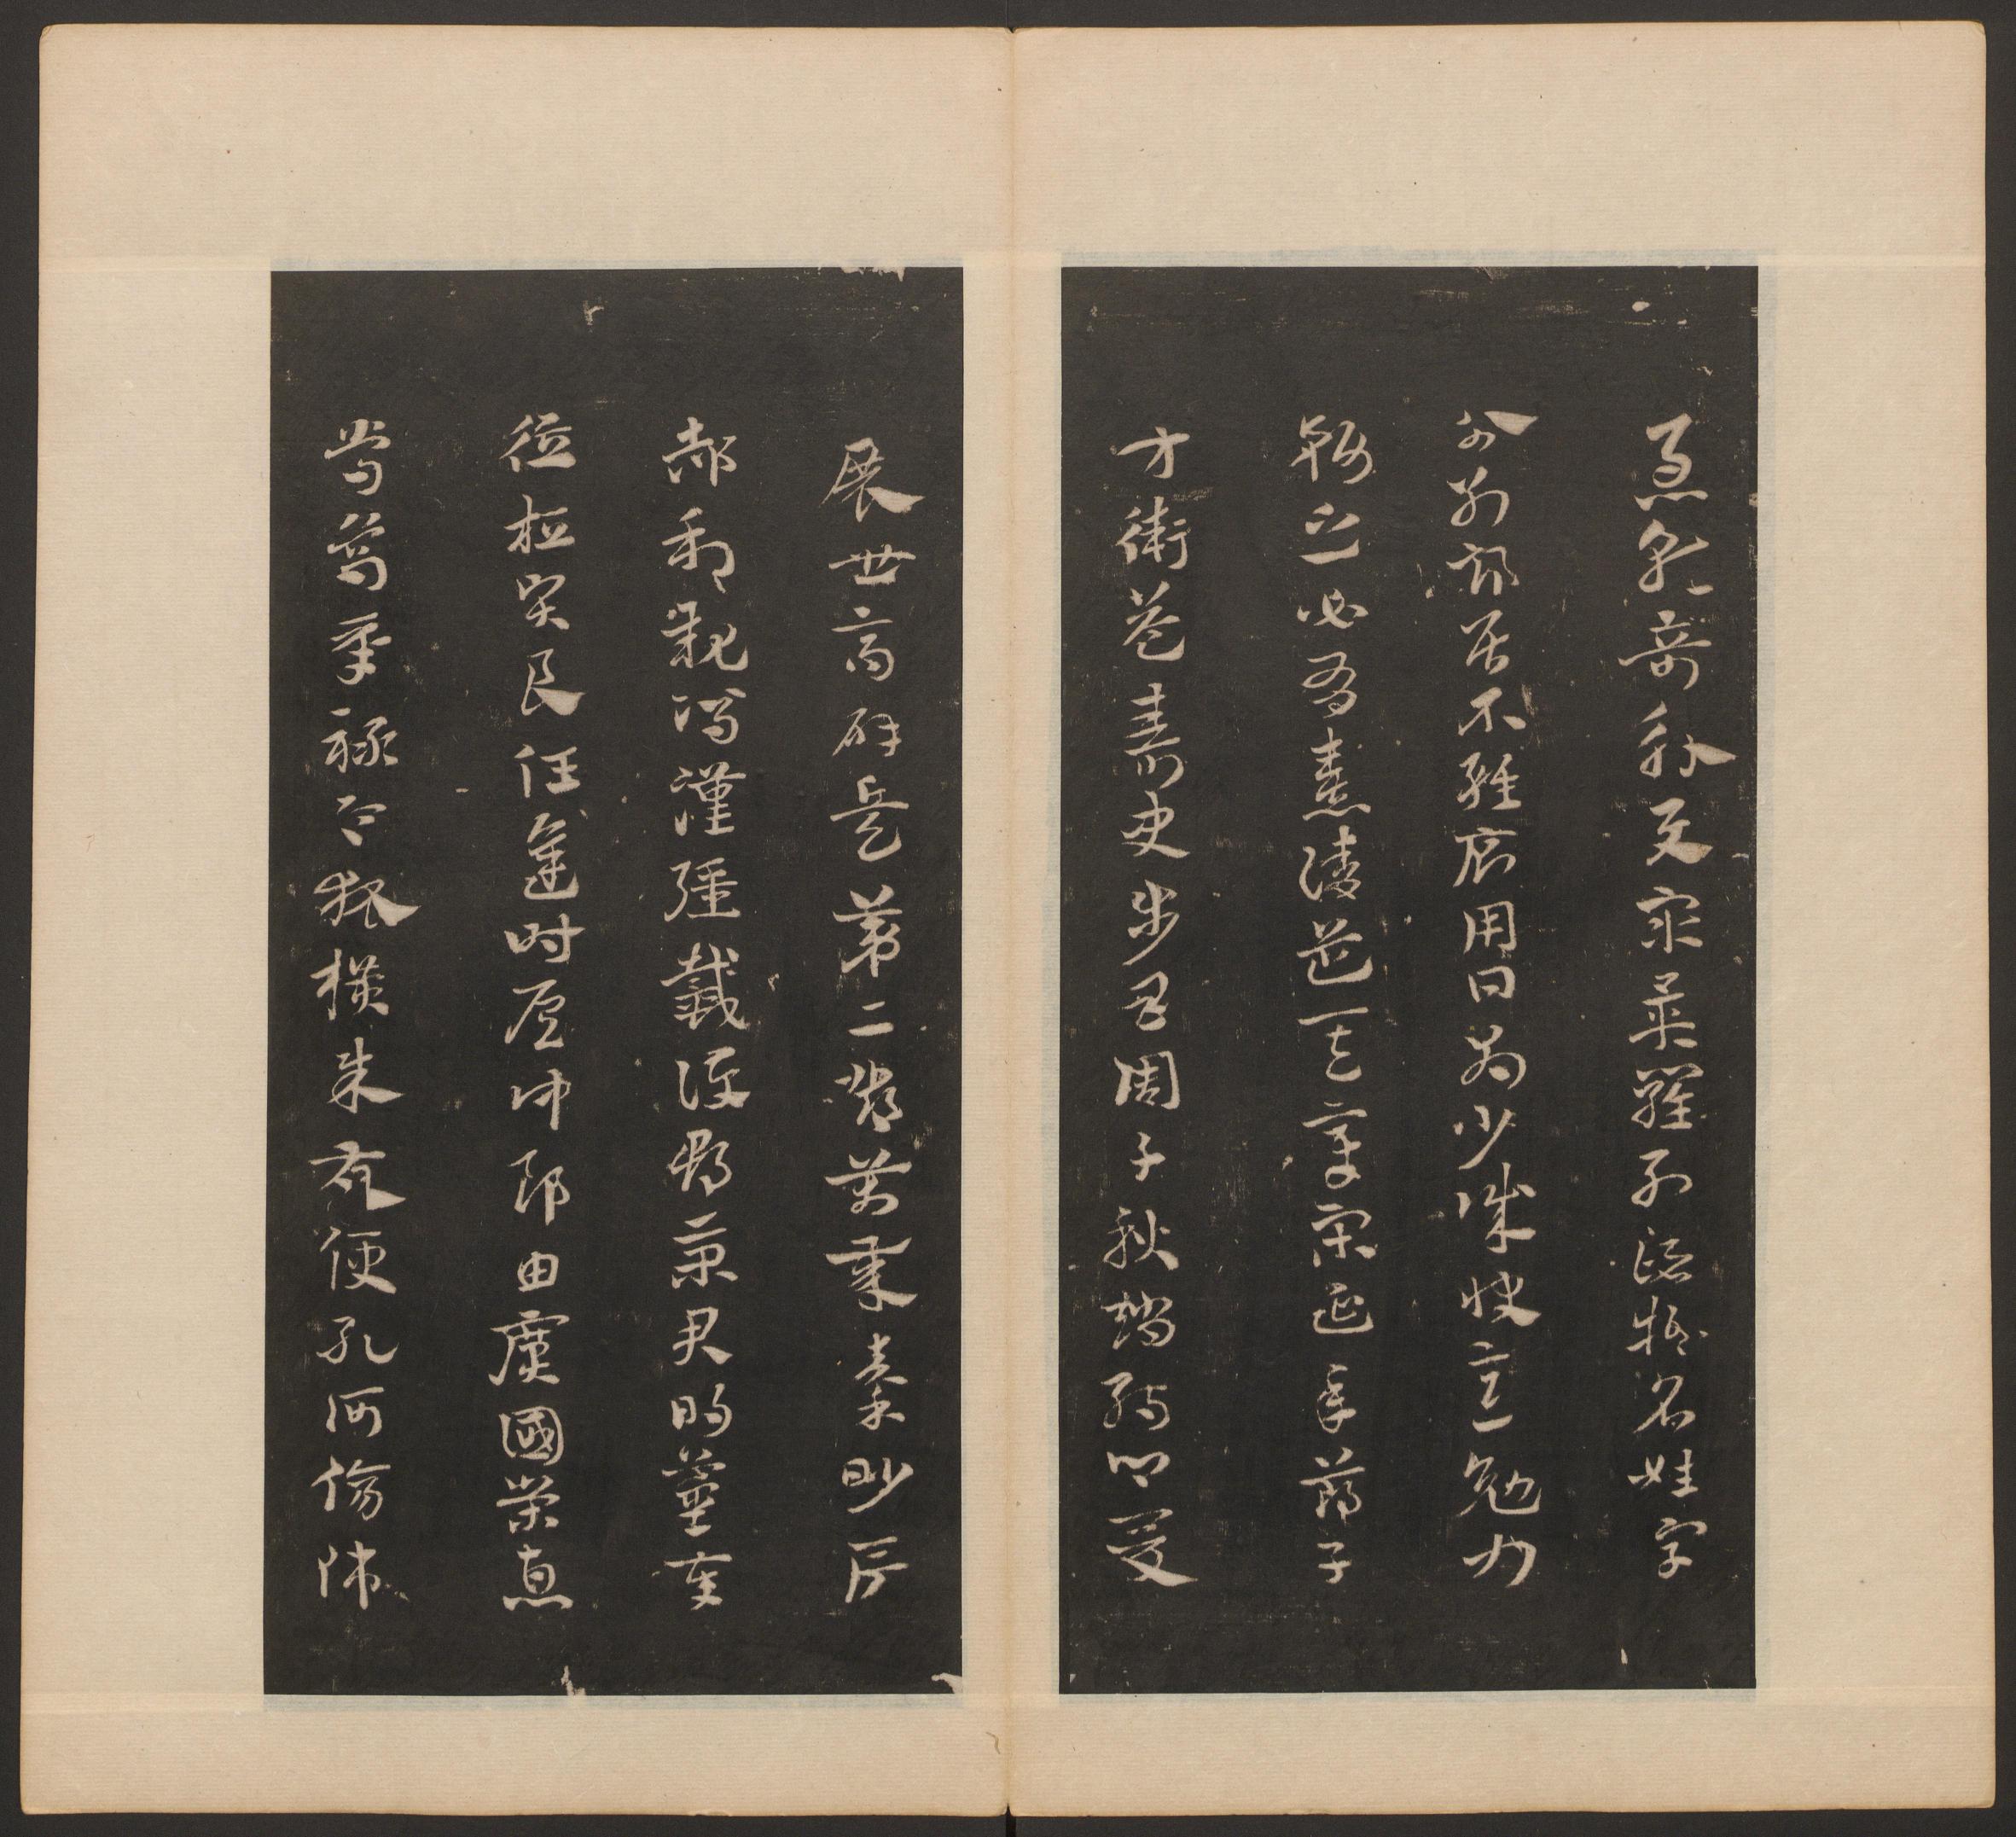 急就奇觚與衆異羅列諸物名姓字
分別部居不雜廁用日約少誠快意勉力
務之必有憙請道其章宋延年鄭子
方衛益壽史步昌周千秋趙孺卿爰
展世高辟兵第二鄧萬歲秦眇房
郝利親馮漢彊戴護郡景君明董奉
德桓賢良任逢時侯仲郎由廣國榮惠
常烏承祿令狐橫朱交便孔何傷師